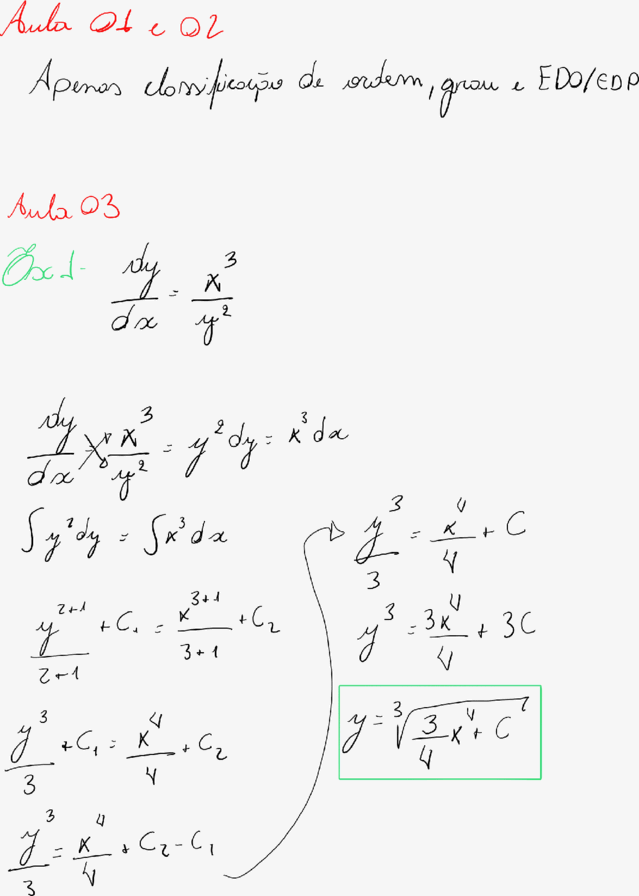 Aula 01 e 02
Apenas classificação de ordem, grau e EDO/EDP
Aula 03
Ex 1- dy/dx = x³/y²
dy/dx = x³/y² = y² dy = x³ dx
∫y² dy = ∫x³ dx
y²⁺¹/2+1 + C₁ = x³⁺¹/3+1 + C₂
y³/3 + C₁ = x⁴/4 + C₂
y³/3 = x⁴/4 + C₂ - C₁
y³/3 = x⁴/4 + C
y³ = 3x⁴/4 + 3C
y = ³√(3/4 x⁴ + C)